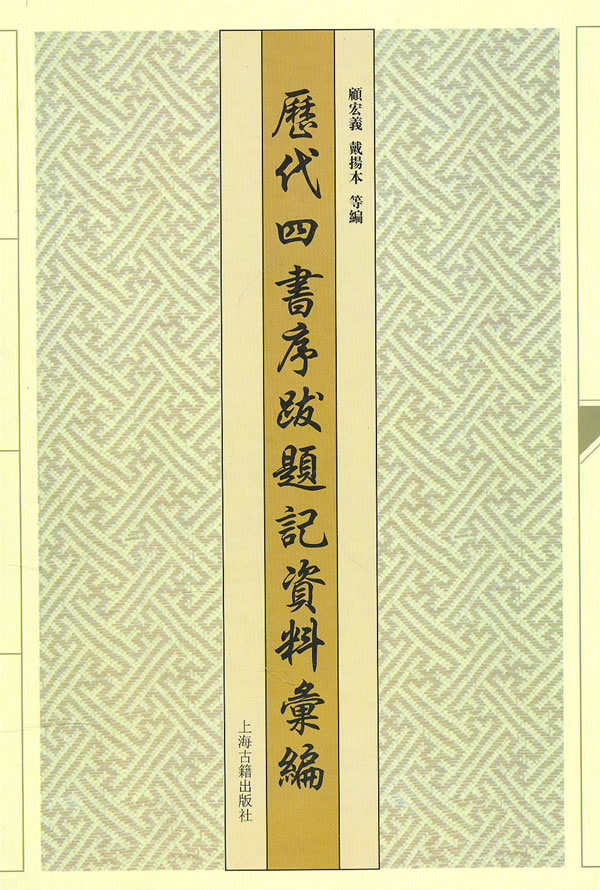 顧宏義 戴揚本 等編
歷代四書序跋題記資料彙編
上海古籍出版社